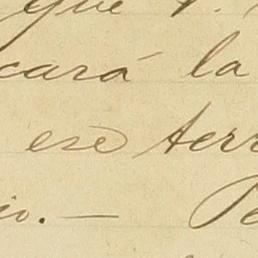 que
cará la
ese terr
io. —